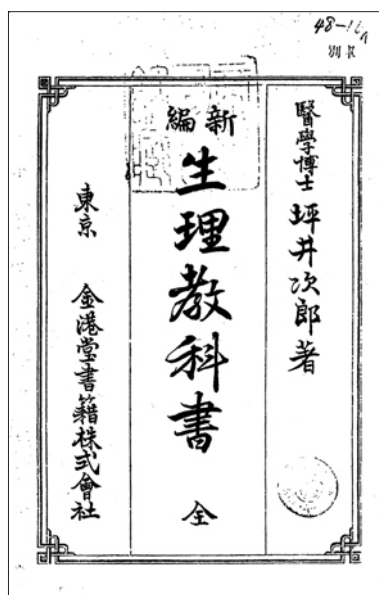 48-11
醫學博士 坪井次郎著
新編
生理教科書 全
東京 金港堂書籍株式會社